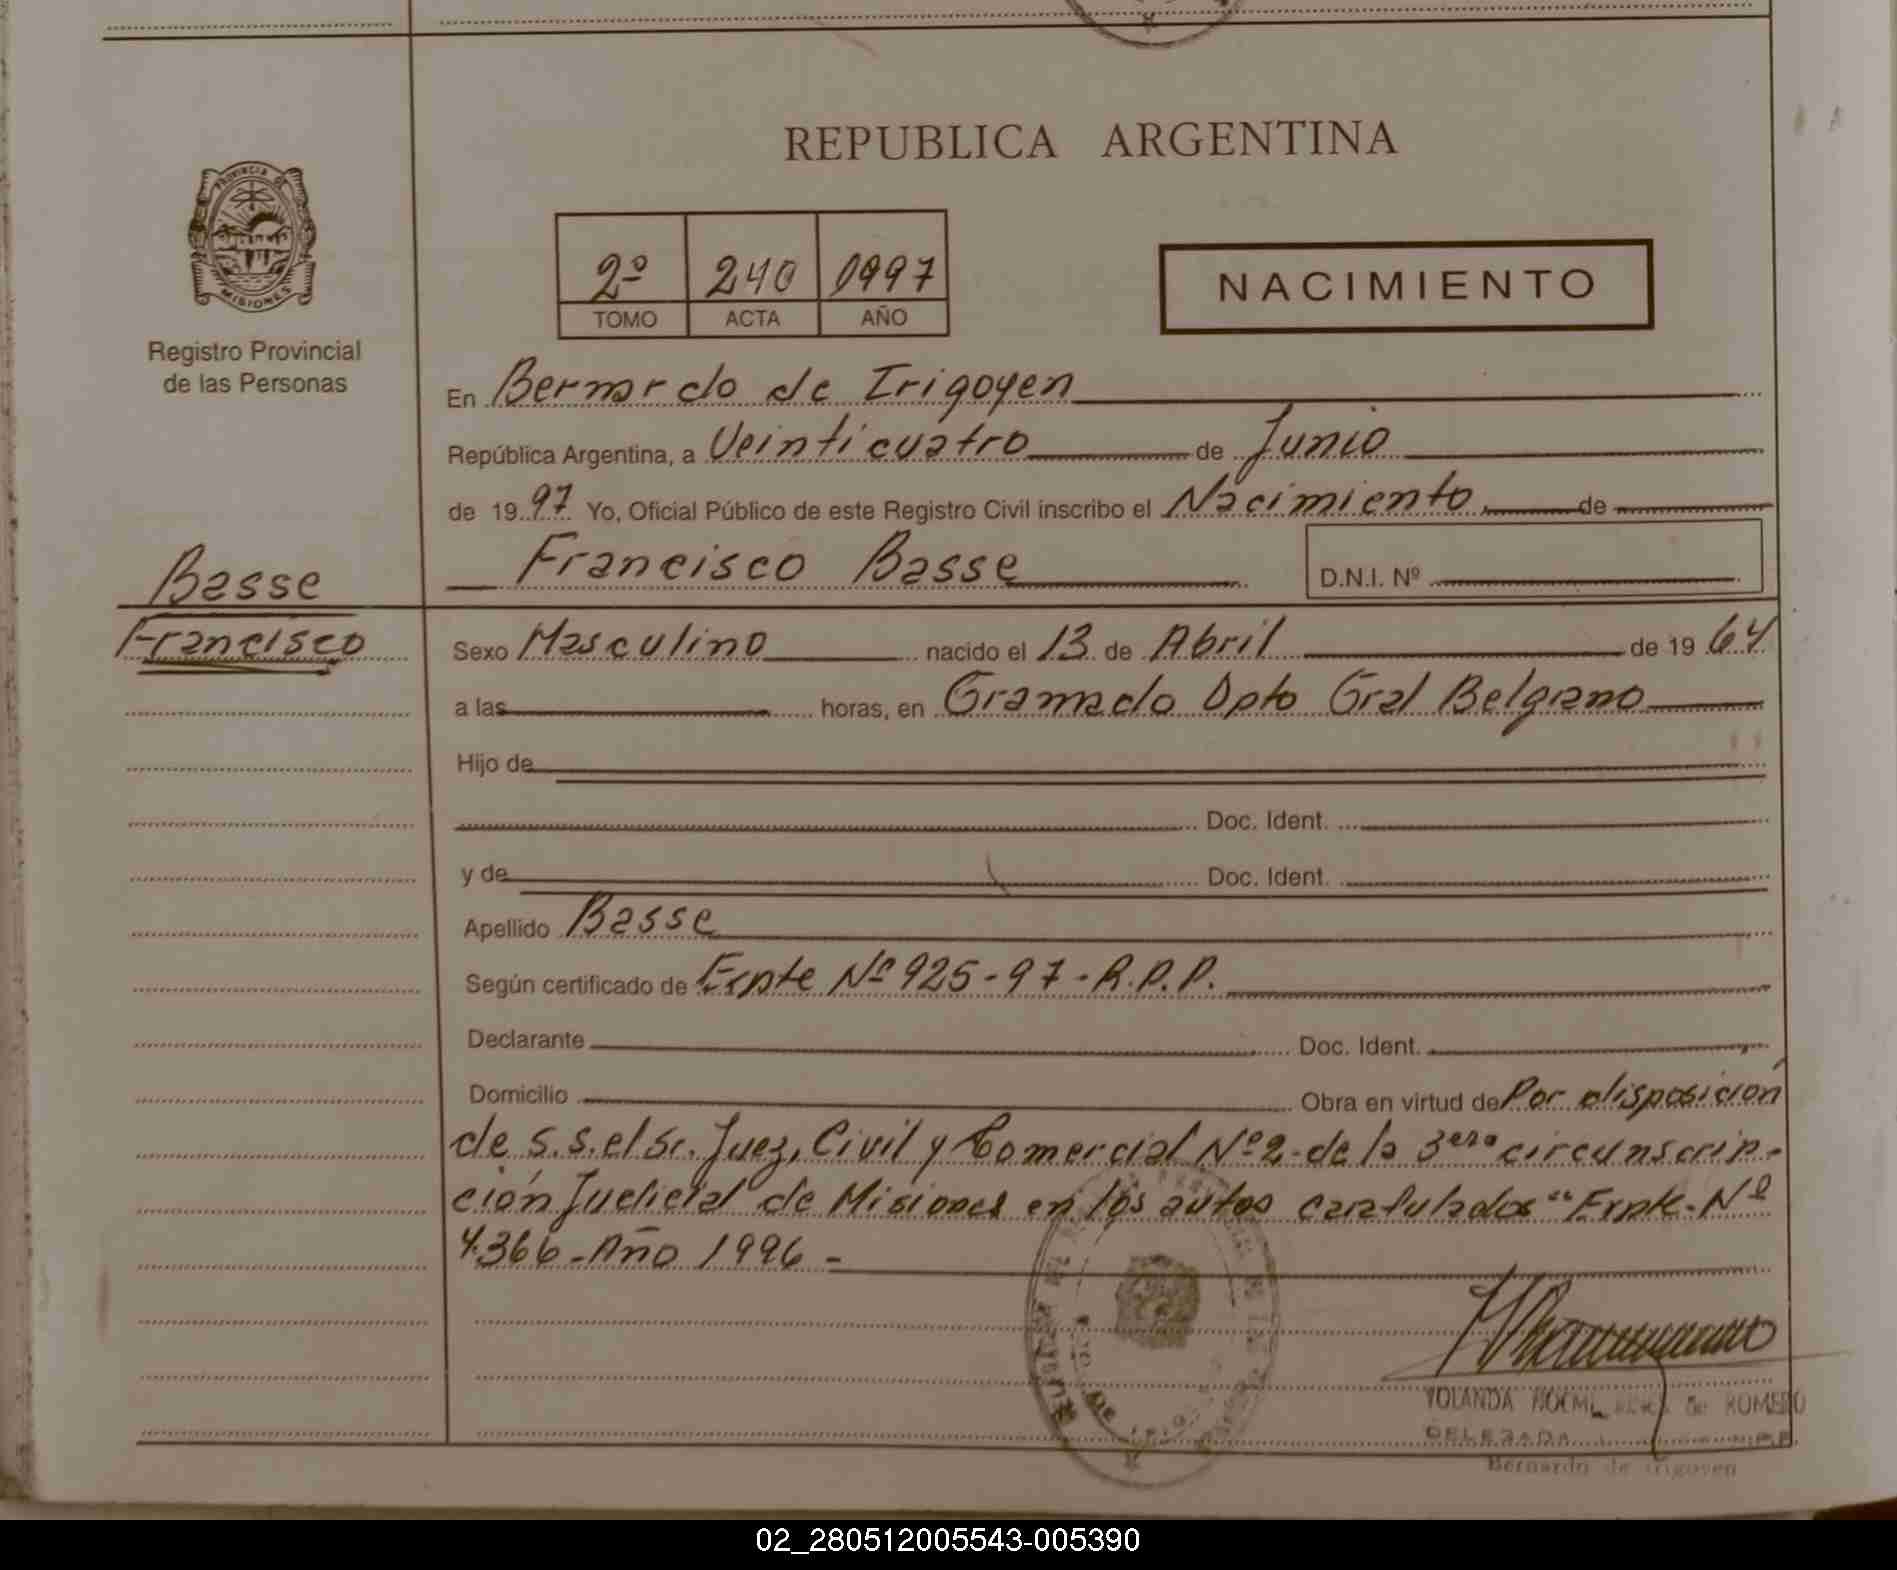 REPUBLICA ARGENTINA
PROVINCIA DE
MISIONES
Registro Provincial
de las Personas
2º 240 1997
TOMO ACTA AÑO
NACIMIENTO
En Bernardo de Irigoyen
República Argentina, a Veinticuatro de Junio
de 1997 Yo, Oficial Público de este Registro Civil inscribo el Nacimiento de
Francisco Basse D.N.I. Nº
Basse
Francisco
Sexo Masculino nacido el 13 de Abril de 1964
a las horas, en Gramado Dpto Gral Belgrano
Hijo de
Doc. Ident.
y de Doc. Ident.
Apellido Basse
Según certificado de Expte Nº 925-97-R.P.P.
Declarante Doc. Ident.
Domicilio Obra en virtud de Por disposición
de S.S. el Sr. Juez, Civil y Comercial Nº 2 - de la 3era circunscrip-
ción Judicial de Misiones en los autos caratulados "Expte. Nº
4.366 - Año 1996 -
YOLANDA de ROMERO
DELEGADA
Bernardo de Irigoyen
02_280512005543-005390